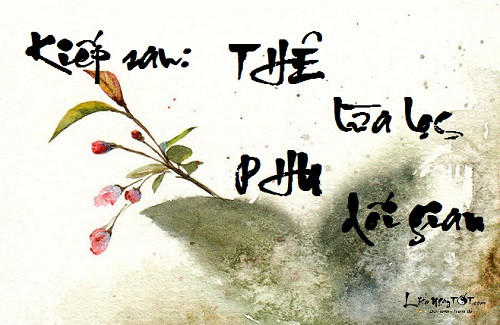 Kiếp sau: THÊ
lừa lọc
PHU
dối gian
LịchNgàyTỐT.com